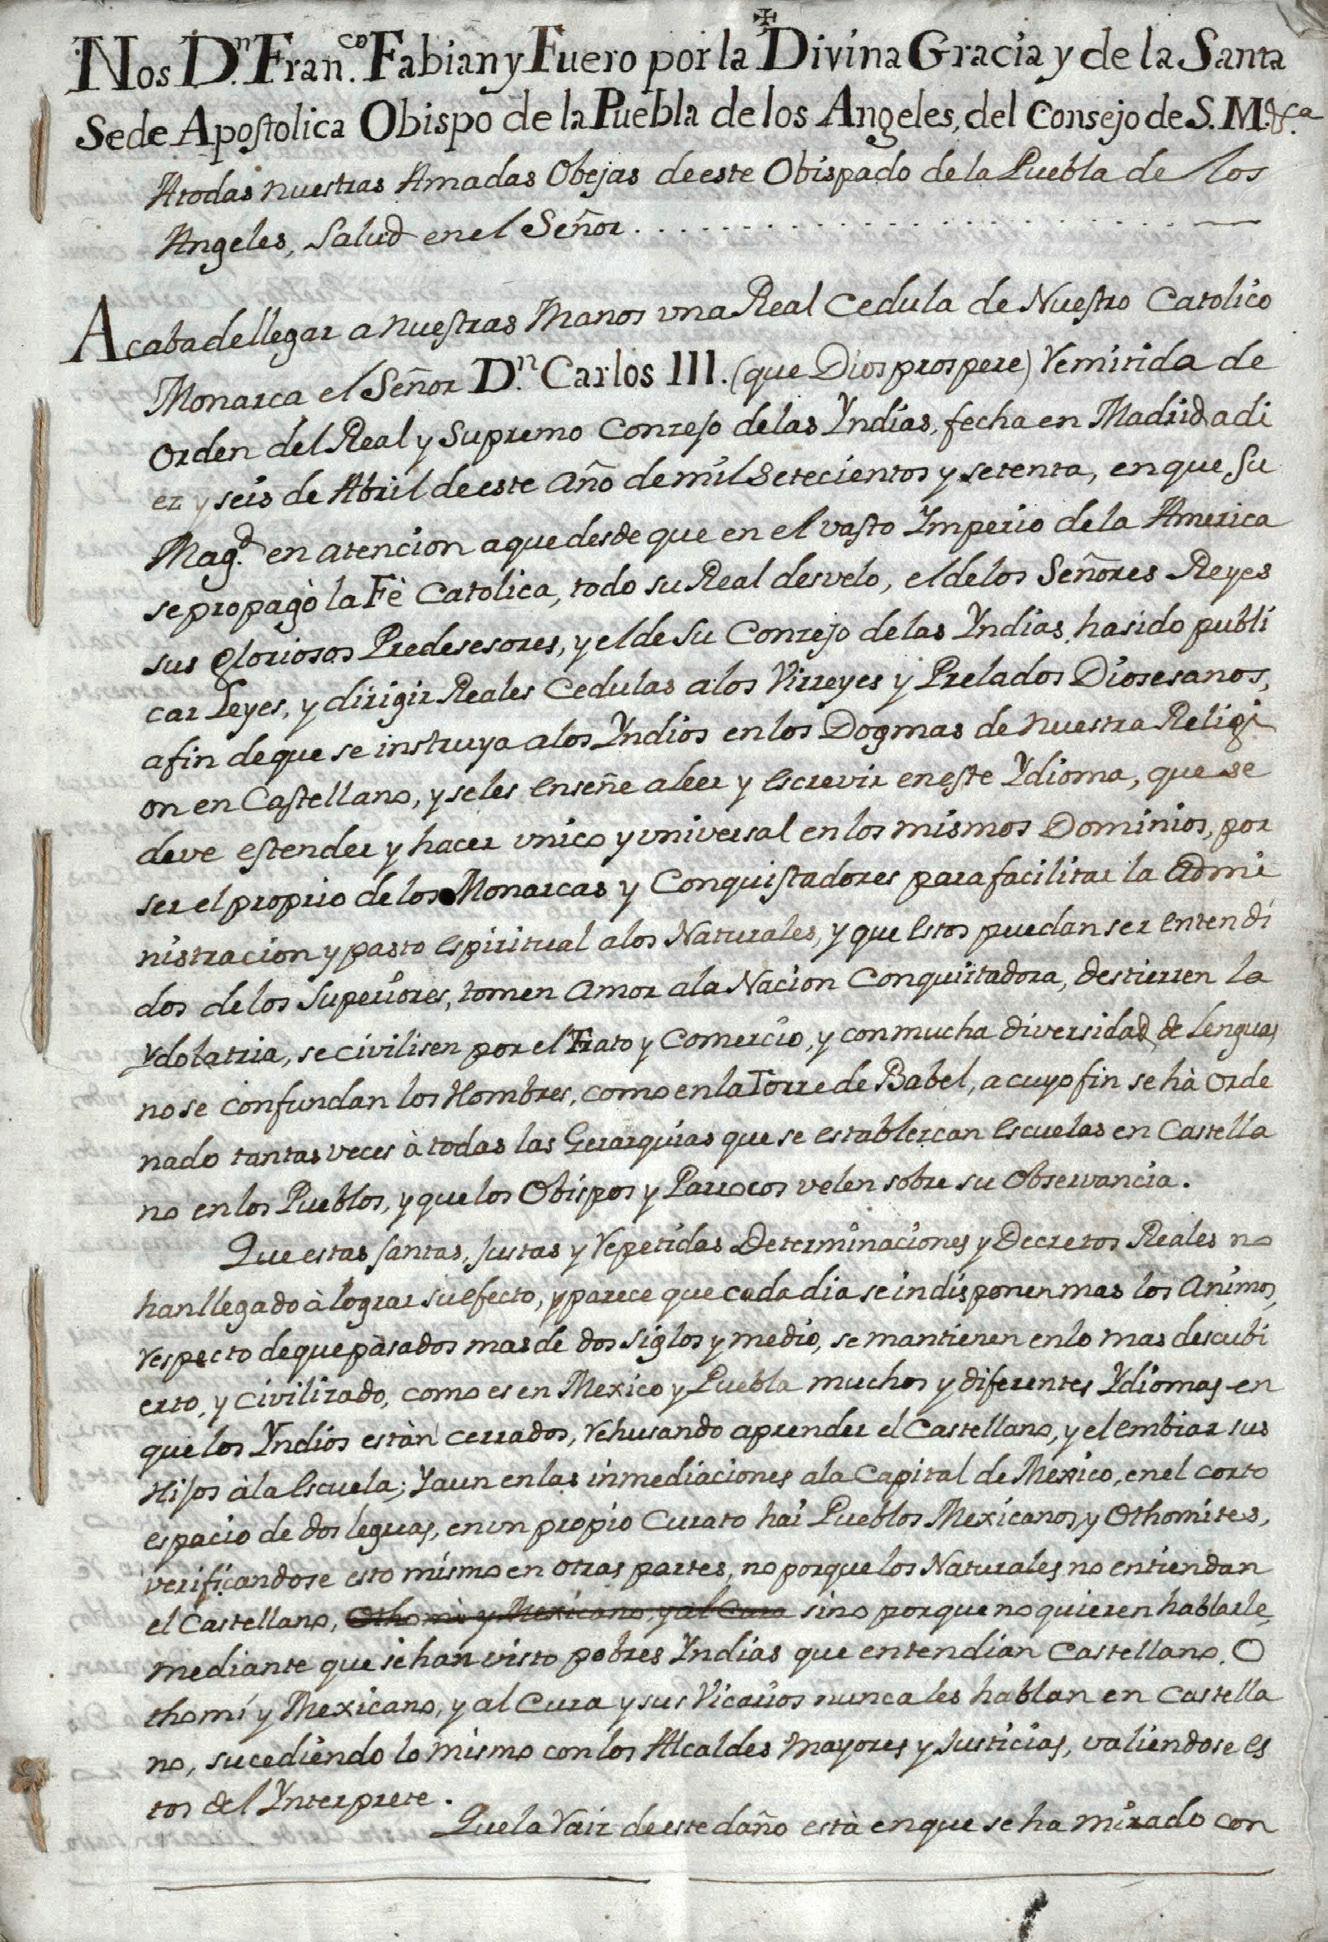 ✠
Nos D.ⁿ Fran.ᶜᵒ Fabian y Fuero por la Divina Gracia y de la Santa
Sede Apostolica Obispo de la Puebla de los Angeles, del Consejo de S. M. &.ᶜᵃ
A todas nuestras Amadas Obejas de este Obispado de la Puebla de los
Angeles, Salud en el Señor.
Acaba de llegar a nuestras Manos una Real Cedula de Nuestro Catolico
Monarca el Señor D.ⁿ Carlos III. (que Dios prospere) remitida de
Orden del Real y Supremo Consejo de las Yndias, fecha en Madrid a di
ez y seis de Abril de este Año de mil Setecientos y setenta, en que Su
Mag.ᵈ en atencion a que desde que en el vasto Imperio de la America
se propagò la Fè Catolica, todo su Real desvelo, el de los Señores Reyes
sus gloriosos Predesesores, y el de Su Consejo de las Yndias, ha sido publi
car Leyes, y dirigir Reales Cedulas a los Virreyes y Prelados Diosesanos,
a fin de que se instruya a los Yndios en los Dogmas de nuestra Religi
on en Castellano, y se les enseñe a leer y escrevir en este Ydioma, que se
deve estender y hacer unico y universal en los mismos Dominios, por
ser el proprio de los Monarcas y Conquistadores para facilitar la admi
nistracion y pasto espiritual a los Naturales, y que estos puedan ser entendi
dos de los Superiores, tomen amor a la Nacion Conquistadora, destierren la
Ydolatria, se civilisen por el Trato y Comercio, y con mucha diversidad de Lenguas
no se confundan los Hombres, como en la Torre de Babel, a cuyo fin se hà orde
nado tantas veces à todas las Gerarquias que se establezcan escuelas en Castella
no en los Pueblos, y que los Obispos y Parrocos velen sobre su Observancia.
Que estas santas, justas y repetidas Determinaciones y Decretos Reales no
han llegado à lograr su efecto, y parece que cada dia se indisponen mas los Animos,
respecto de que pasados mas de dos siglos y medio, se mantienen en lo mas descubi
erto, y civilizado, como es en Mexico y Puebla muchos y diferentes Ydiomas en
que los Yndios estàn cerrados, rehusando aprender el Castellano, y el embiar sus
Hijos à la escuela; Y aun en las inmediaciones a la Capital de Mexico, en el corto
espacio de dos leguas, en un propio Curato hai Pueblos Mexicanos y Othomites,
verificandose esto mismo en otras partes, no porque los Naturales no entiendan
el Castellano, Othomi y Mexicano, y al Cura sino porque no quieren hablarle,
mediante que se han visto pobres Yndias que entendian Castellano, O
thomi y Mexicano, y al Cura y sus Vicarios nunca les hablan en Castella
no, sucediendo lo mismo con los Alcaldes mayores y Justicias, valiendose es
tos del Ynterprete.
Que la raiz de este daño està en que se ha mirado con